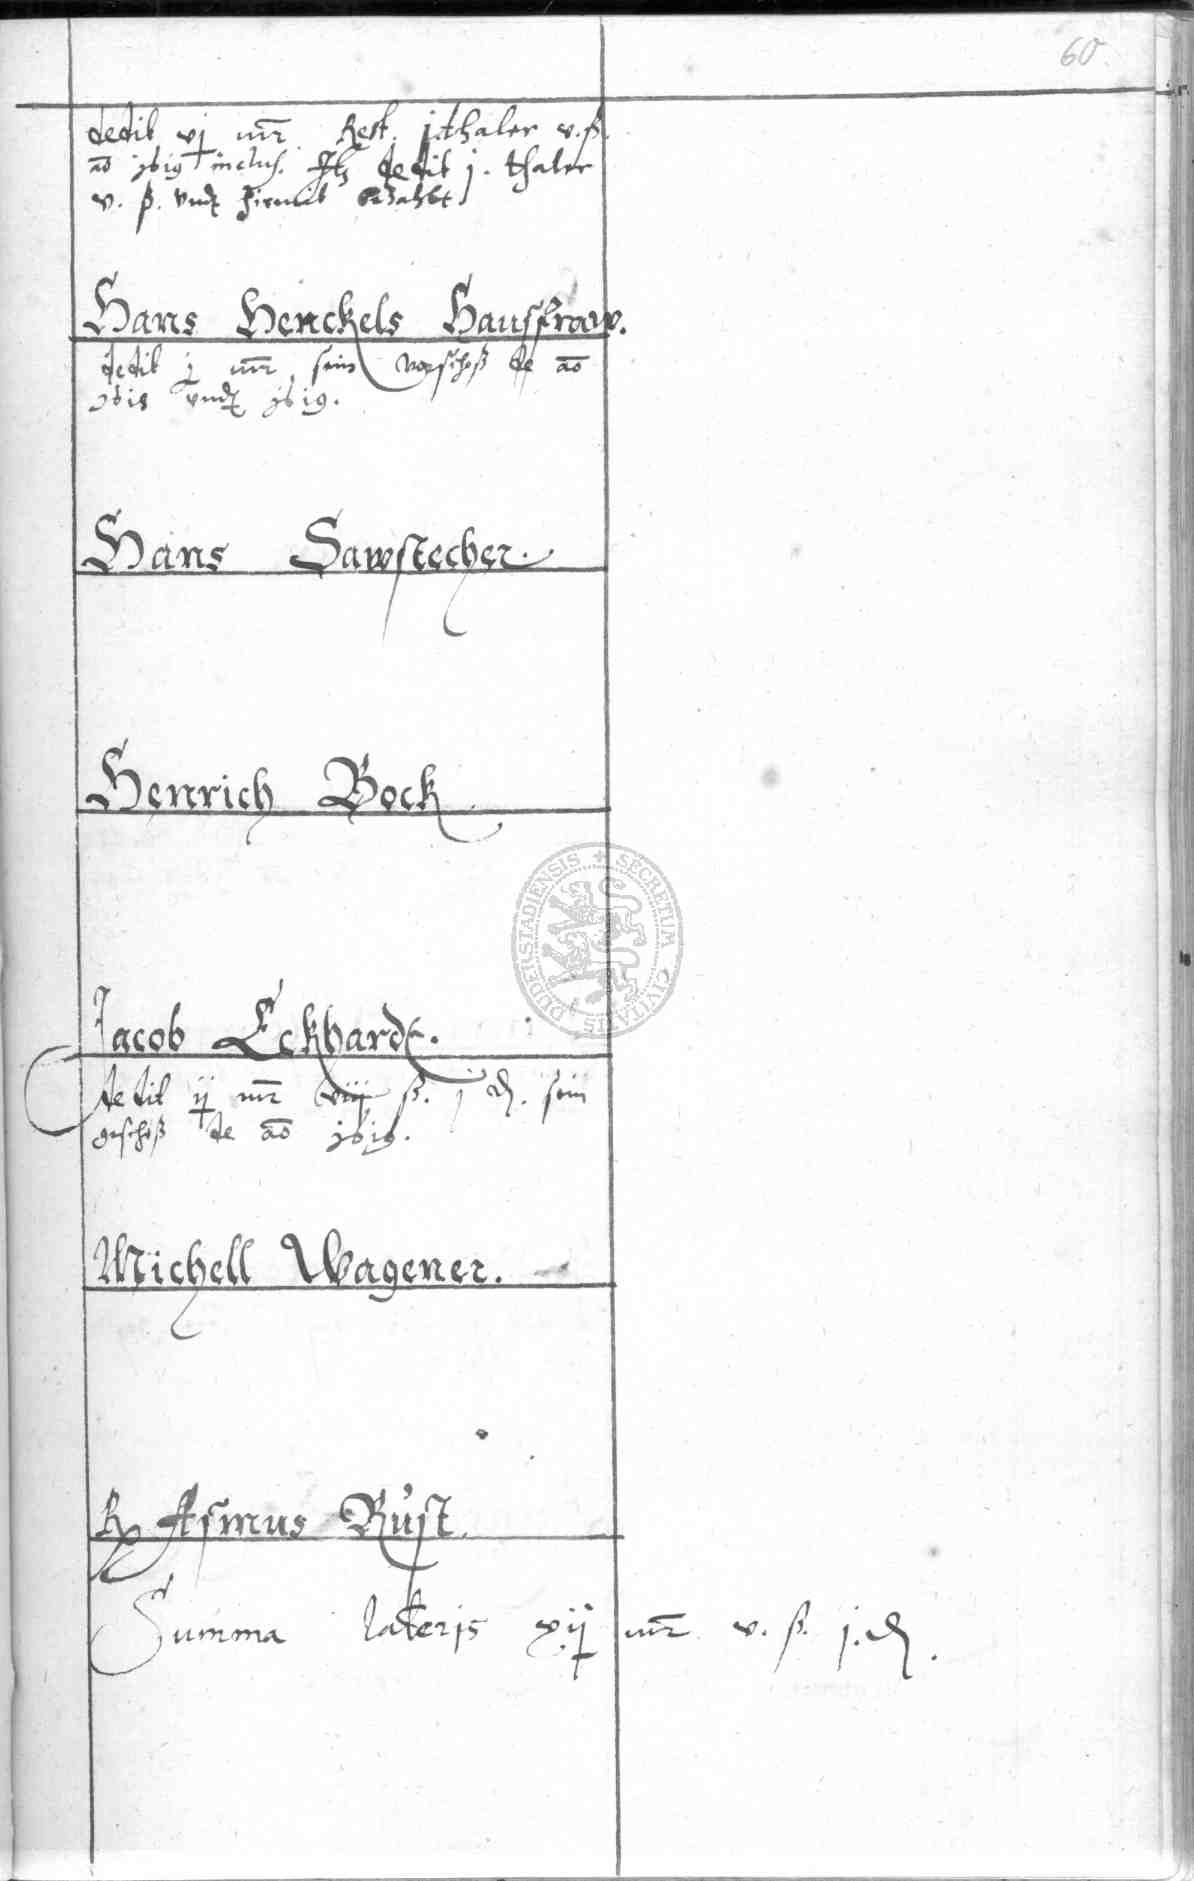 60
dedit vj mr Rest. j thaler v. ß.
ao 1619 inclus. Jtz dedit j. thaler
v. ß. vnd hiemit bezahlt
Hans Henckels Hausfraw.
dedit j mr sein vorschoß de ao
1618 vnd 1619.
Hans Sawstecher.
Henrich Bock
DUDERSTADIENSIS SECRETUM CIVITATIS
Jacob Eckhardt.
dedit ij mr viij ß. j d. sein
geschoß de ao 1619.
Michell Wagener.
Asmus Rust.
Summa lateris xij mr v. ß. j. d.